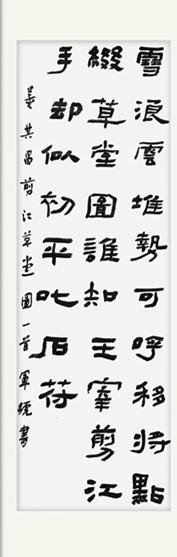 雪浪雲堆勢可呼移将點
綴草堂圖誰知王宰剪江
手却似初平叱石符
董其昌剪江草堂圖一首軍曉書